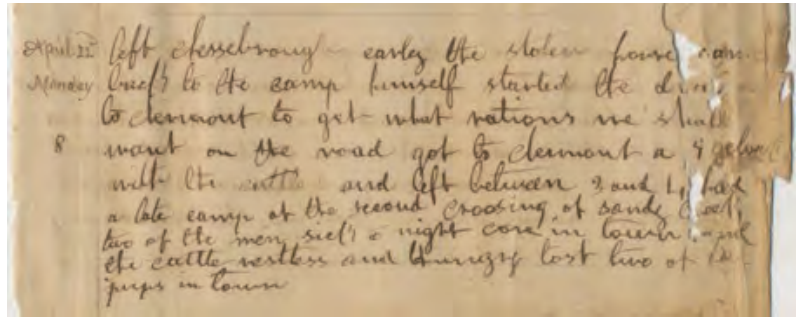 April 22 left chessebrough early the stolen horse came
Monday back to the camp himself started the
to clermont to get what rations we shall
8 want on the road got to clermont a
with the cattle and left between 3 and 4 had
a late camp at the second croosing of sandy creek
two of the men sick a night core in town and
the cattle restless and hungry lost two of the
pups in town